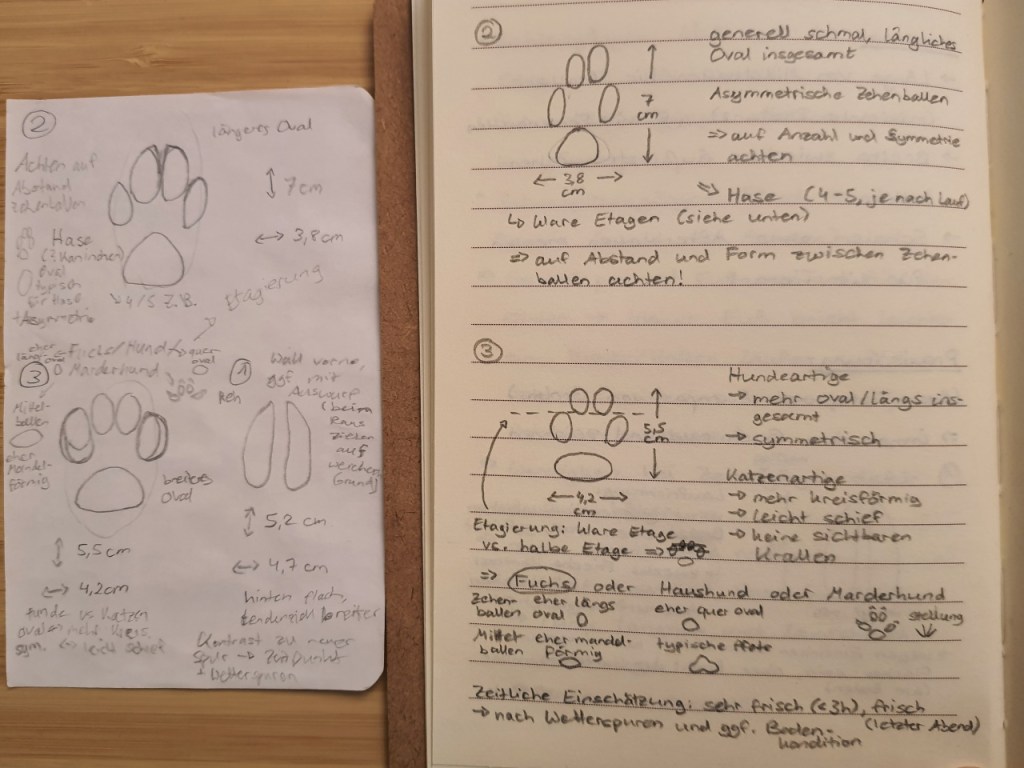 2
längeres Oval
Achten auf
Abstand
Zehenballen
7 cm
3,8 cm
Hase
Oval
typisch
für Hase
+Asymmetrie
4/5 Z.B.
Etagierung
Fuchs/Hund
Marderhund
eher
quer
oval
3
Mittel-
ballen
eher
Mandel-
förmig
breites
Oval
5,5 cm
4,2 cm
Hunde vs Katzen
oval mehr Kreis
sym. leicht schief
1
Reh
Wall vorne,
ggf. mit
Auswurf
(beim
Raus
ziehen
auf
weichem
Grund)
5,2 cm
4,7 cm
hinten flach,
tendenziell breiter
Kontrast zu neuer
Spur → Zeitpunkt
Wetterspuren
2
generell schmal, längliches
Oval insgesamt
7
cm
Asymmetrische Zehenballen
⇒ auf Anzahl und Symmetrie
achten
3,8
cm
⇒ Hase (4-5, je nach Lauf)
↳ Ware Etagen (siehe unten)
⇒ auf Abstand und Form zwischen Zehen-
ballen achten!
3
Hundeartige
→ mehr oval/längs ins-
gesamt
→ symmetrisch
5,5
cm
Katzenartige
→ mehr kreisförmig
→ leicht schief
→ keine sichtbaren
Krallen
4,2
cm
Etagierung: Ware Etage
vs. halbe Etage ⇒
⇒ Fuchs oder Haushund oder Marderhund
Zehen- eher längs eher quer oval
ballen oval stellung
Mittel eher mandel- typische Pfote
ballen förmig
Zeitliche Einschätzung: sehr frisch (<3h), frisch
→ nach Wetterspuren und ggf. Boden- (letzter Abend)
kondition